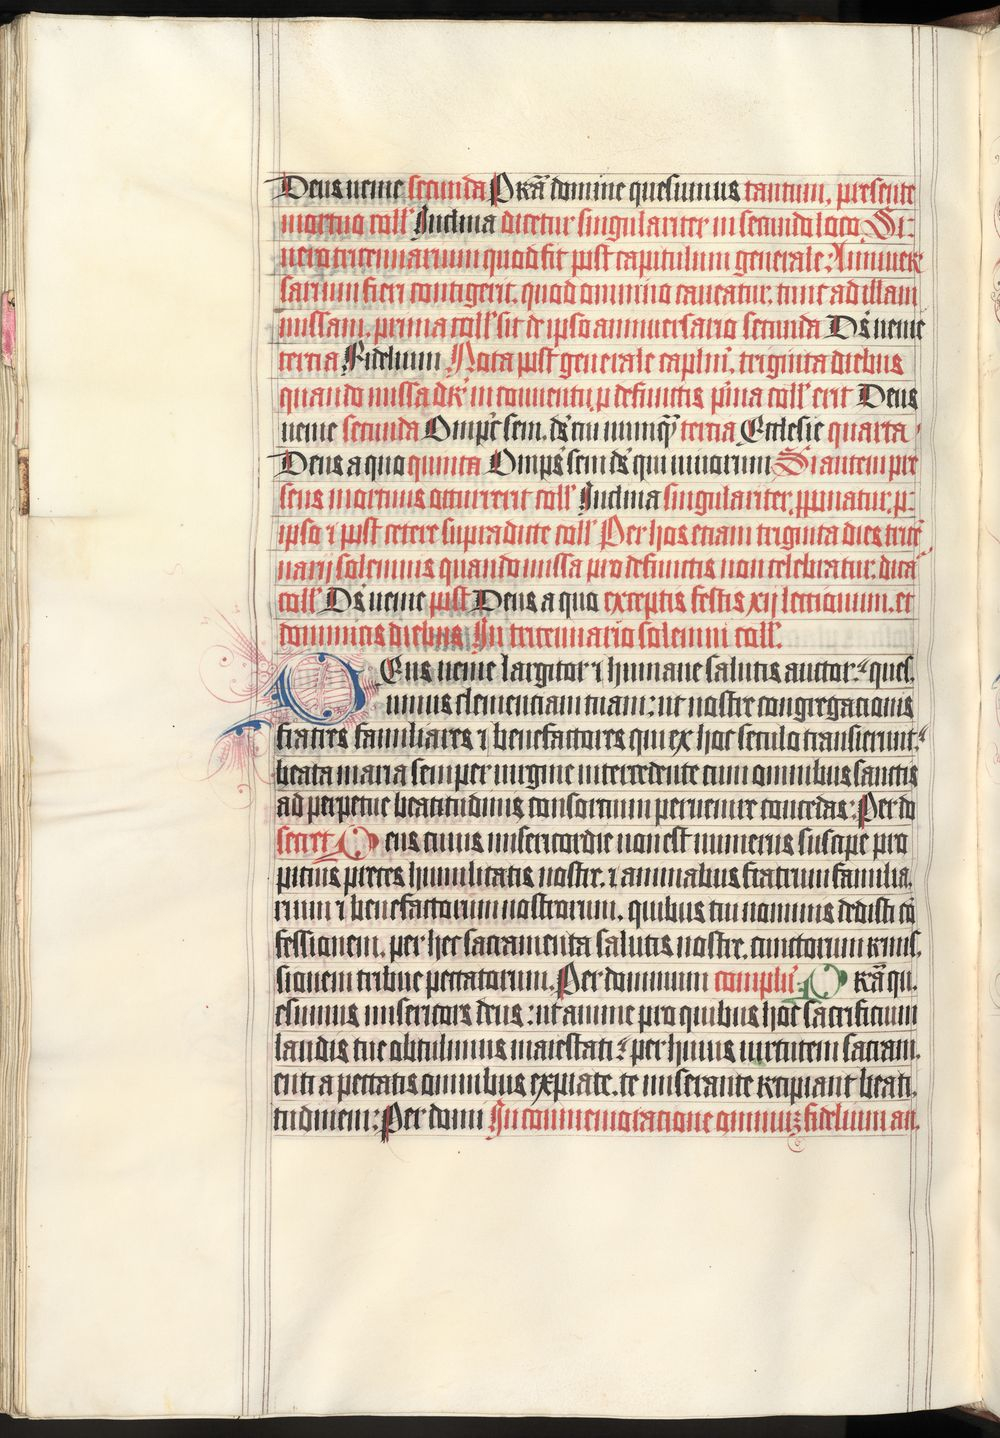 Deus uenie secunda Pr̄a domine quesumus tantum, presente
mortuo coll' Inclina dicetur singulariter in secundo loco Si
uero tricennarium quod fit post capitulum generale: Anniuer
sarium fieri contigerit, quod omnino caueatur, tunc ad illam
missam, prima coll' sit de ipso anniuersario secunda Ds̄ uenie
tercia Fidelium Nota post generale caplm̄, triginta diebus
quando missa dr̄ in conuentu p̱ defunctis p'ma coll' erit Deus
uenie secunda Omp̄s sem. ds̄ cui nunq̄ tercia Ecclesie quarta
Deus a quo quinta Omps̄ sem ds̄ qui uiuorum Si autem pre
sens mortuus occurrerit coll' Inclina singulariter, p̱ponatur, p̱
ipso ⁊ post cetere supradicte coll' Per hos etiam triginta dies tricē
narij solennis quando missa pro defunctis non celebratur, dicā
coll' Ds̄ uenie post Deus a quo exceptis festis xij lectionum, et
dominicis diebus In tricennario solenni coll'
Deus uenie largitor ⁊ humane salutis auctor: ques,
umus clementiam tuam: ut nostre congregacionis
fratres familiares ⁊ benefactores qui ex hoc seculo transierunt:
beata maria semper uirgine intercedente cum omnibus sanctis
ad perpetue beatitudinis consorcium peruenire concedas: Per do
secret Deus cuius misericordie non est numerus suscipe pro
picius preces humilitatis nostre, ⁊ animabus fratrum familia,
rium ⁊ benefactorum nostrorum, quibus tui nominis dedisti cō
fessionem, per hec sacramenta salutis nostre, cunctorum remis,
sionem tribue peccatorum, Per dominum complū Pr̄a qu,
esumus misericors deus: ut anime pro quibus hoc sacrificium
laudis tue obtulimus maiestati: per huius uirtutem sacram,
enti a peccatis omnibus expiate, te miserante recipiant beati,
tudinem: Per domi In commemoracione omniuȝ fidelium an,